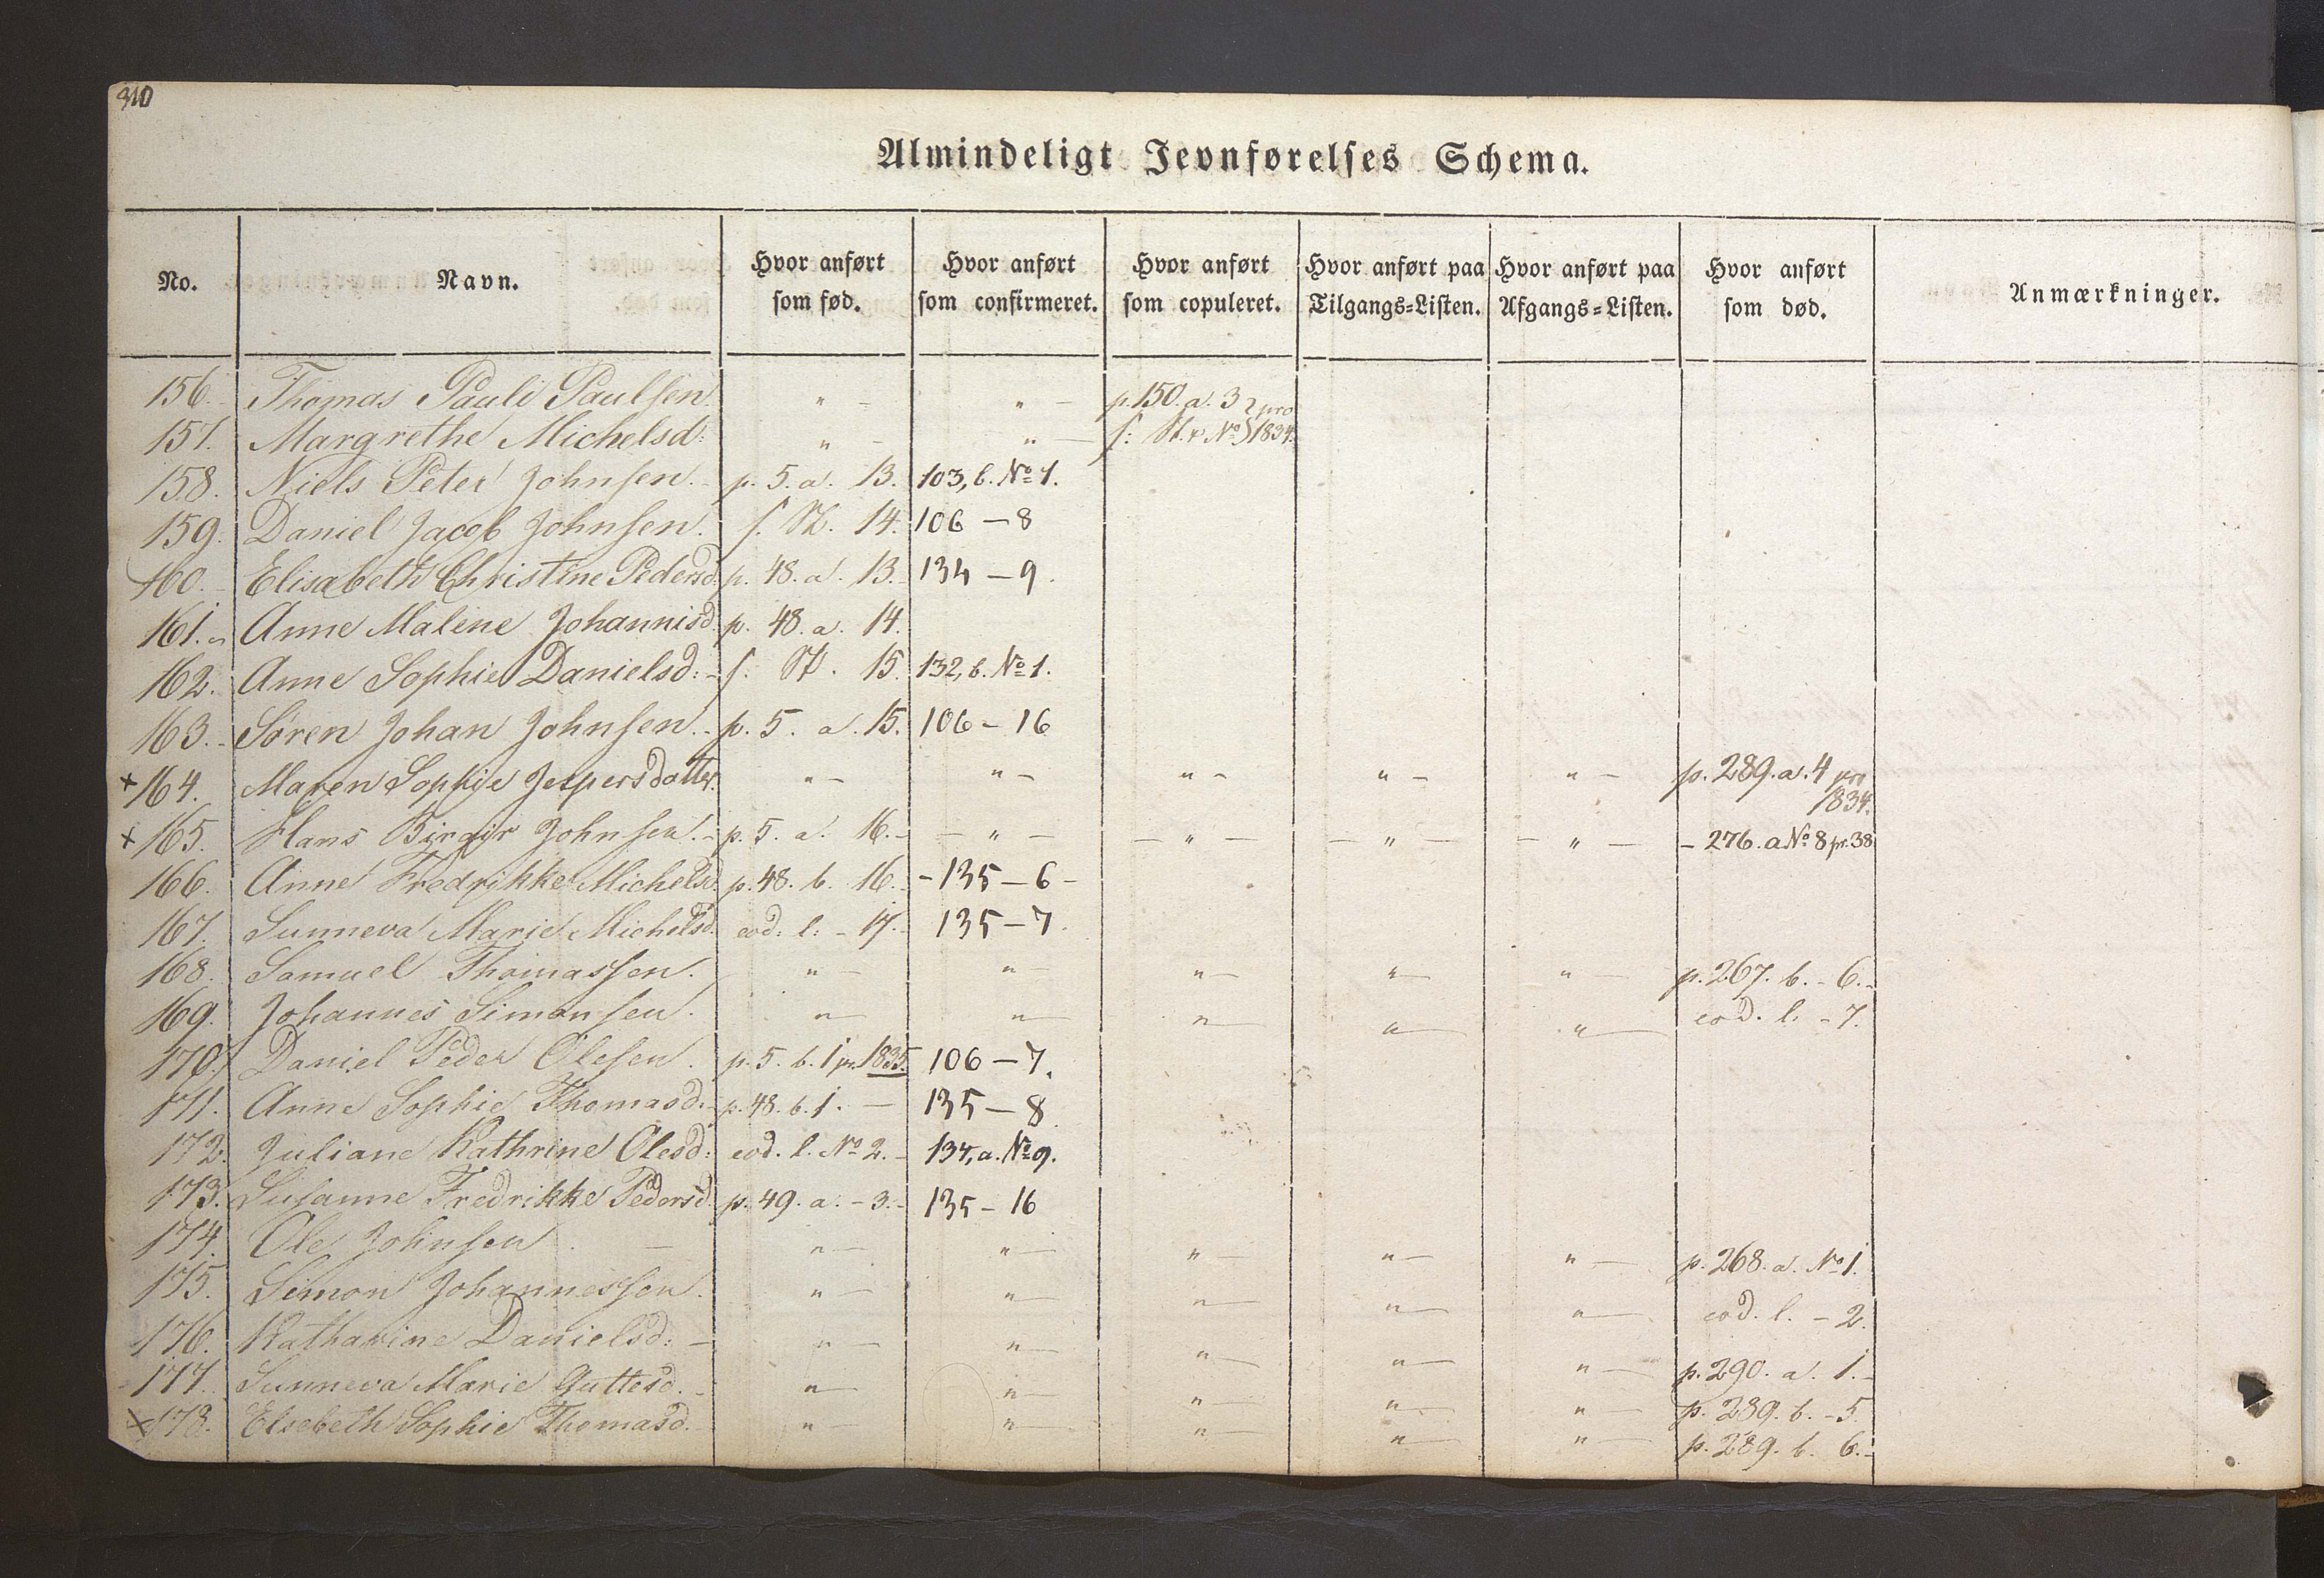 310
Almindeligt Jevnførelses Schema.
No. Navn. Hvor anført som fød. Hvor anført som confirmeret. Hvor anført som copuleret. Hvor anført paa Tilgangs=Listen. Hvor anført paa Afgangs=Listen. Hvor anført som død. Anmærkninger.
156. Thomas Pauli Paulsen. " - " - p. 150. a. 3 } pro
157. Margrethe Michelsd: " - " - s: St. & No } 1834.
158. Niels Peter Johnsen. - p. 5. a. 13. 103, b. No 1.
159. Daniel Jacob Johnsen. s. St. 14. 106 - 8
160. - Elisabeth Christine Pedersd. p. 48. a. 13. - 134 - 9.
161. Anne Malene Johannisd. p. 48. a. 14.
162. Anne Sophie Danielsd: - s: St. 15. 132, b. No 1.
163. - Søren Johan Johnsen. - p. 5. a. 15. 106 - 16
+ 164. Maren Sophie Jespersdatter. " - " - " - " - " - p. 289. a. 4 pro 1834.
+ 165. Hans Birgir Johnsen. - p. 5. a. 16. - - " - - " - - " - - " - - 276. a No 8 pr. 38
166. Anne Fredrikke Michelsd. p. 48. b. 16. - - 135 - 6 -
167. Sunneva Marie Michelsd. eod: l: - 17. - 135 - 7.
168. Samuel Thomassen. " - " - " - " - " - p. 267. b. - 6. -
169. Johannes Simonsen. " - " - " - " - " - eod. l. - 7.
170. Daniel Peder Olesen. p. 5. b. 1 pr. 1835. 106 - 7.
171. Anne Sophie Thomasd. - p. 48. b. 1. - 135 - 8
172. Juliane Kathrine Olesd: eod. l. No 2. - 134, a. No 9.
173. Susanne Fredrikke Pedersd. p. 49. a. - 3. - 135 - 16
174. Ole Johnsen. - " - " - " - " - " - p. 268. a. No 1.
175. Simon Johannessen. " - " - " - " - " - eod. l. - 2.
176. Katharine Danielsd: - " - " - " - " - " - p. 290. a. 1. -
177. Sunneva Marie Guttesd. - " - " - " - " - " - p. 289. b. - 5.
x 178. Elsebeth Sophie Thomasd. - " " " - " - " - p. 289. b. 6. -